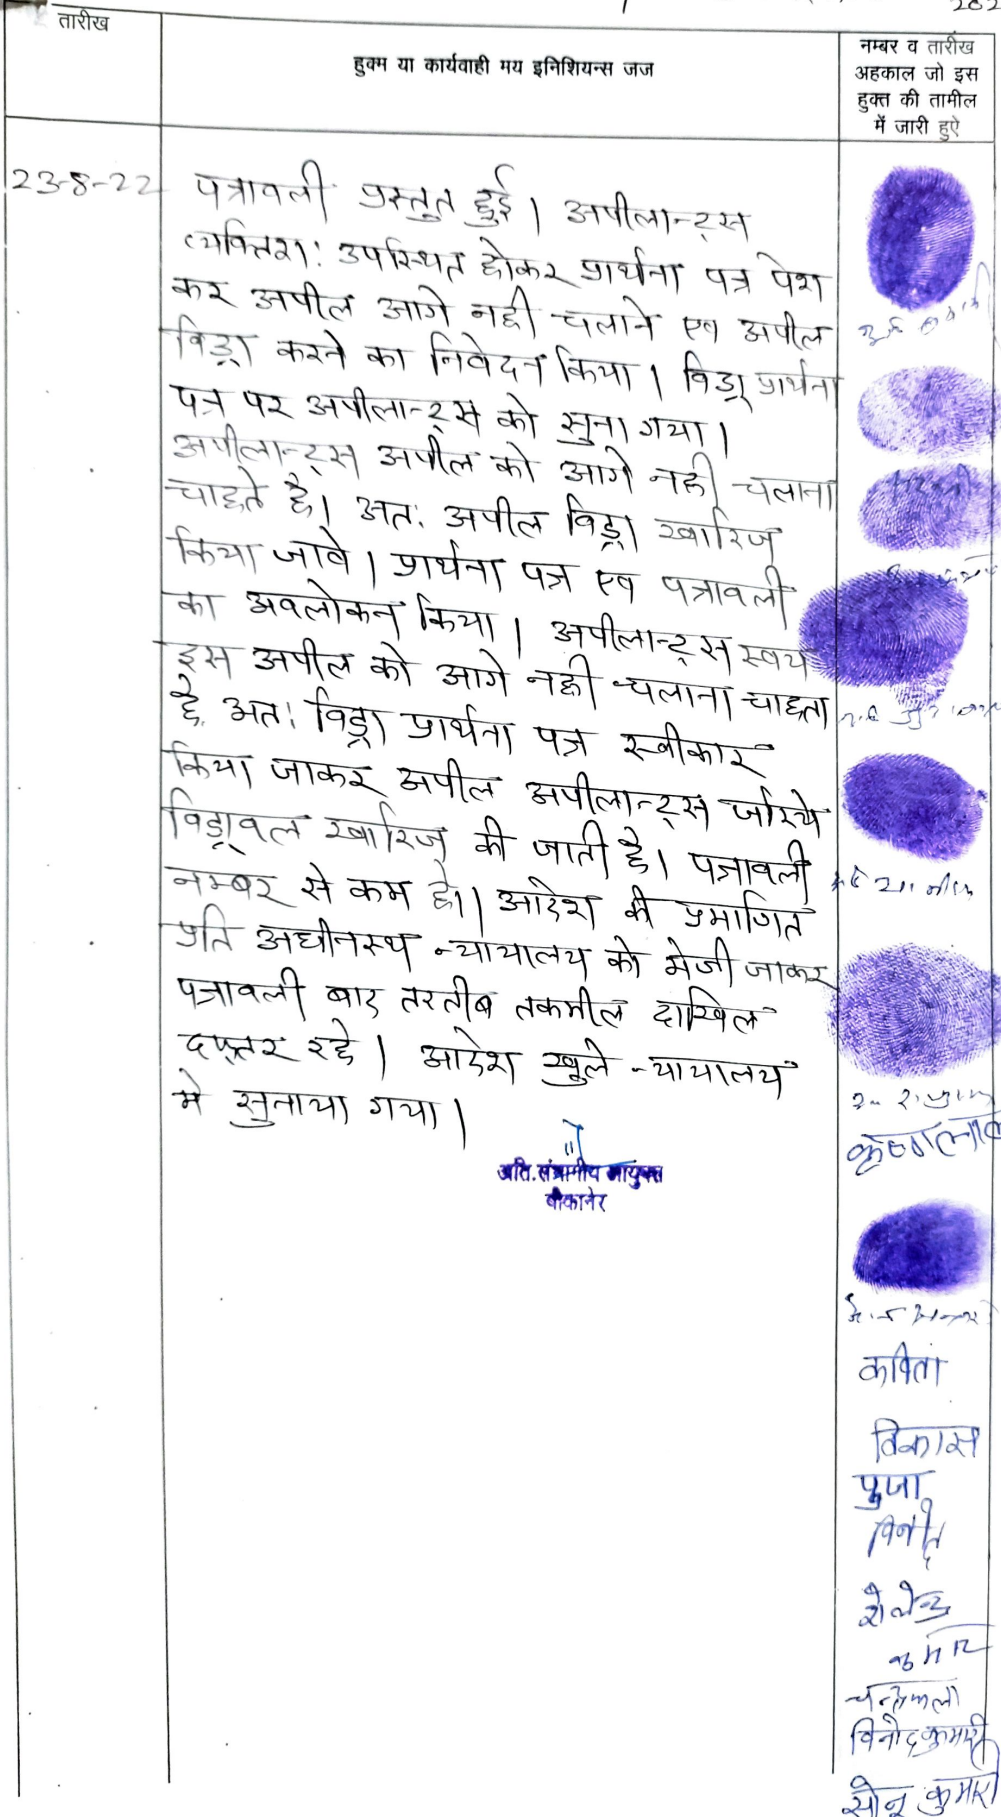 282
तारीख
हुक्म या कार्यवाही मय इनिशियन्स जज
नम्बर व तारीख
अहकाल जो इस
हुक्त की तामील
में जारी हुऐ
23-8-22
पत्रावली प्रस्तुत हुई। अपीलान्ट्स
व्यक्तिश: उपस्थित होकर प्रार्थना पत्र पेश
कर अपील आगे नही चलाने एव अपील
विड्रा करने का निवेदन किया। विड्रा प्रार्थना
पत्र पर अपीलान्ट्स को सुना गया।
अपीलान्ट्स अपील को आगे नही चलाना
चाहते है। अत: अपील विड्रा खारिज
किया जावे। प्रार्थना पत्र एव पत्रावली
का अवलोकन किया। अपीलान्ट्स स्वय
इस अपील को आगे नही चलाना चाहता
है, अत: विड्रा प्रार्थना पत्र स्वीकार
किया जाकर अपील अपीलान्ट्स जरिये
विड्रावल खारिज की जाती है। पत्रावली
नम्बर से कम हो। आदेश की प्रमाणित
प्रति अधीनस्थ न्यायालय को भेजी जाकर
पत्रावली बाद तरतीब तकमील दाखिल
दफ्तर रहे। आदेश खुले न्यायालय
मे सुनाया गया।
अति. संभागीय आयुक्त
बीकानेर
कृष्णलाल
कविता
विकास
पुजा
विनोद
शैलेन्द्र
कुमार
चन्द्रकला
विनोद कुमारी
सोनू कुमारी